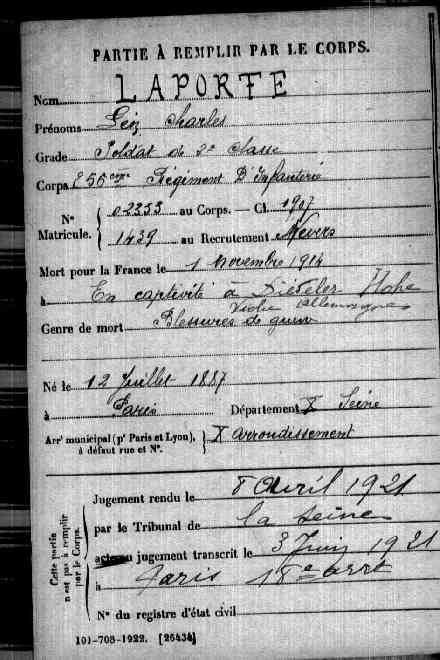 PARTIE À REMPLIR PAR LE CORPS.
Nom LAPORTE
Prénoms Léon Charles
Grade Soldat de 2e classe
Corps 256eme Régiment D'Infanterie
N° Matricule. { 02353 au Corps. — Cl. 1907
1439 au Recrutement Nevers
Mort pour la France le 1 Novembre 1914
à En captivité à
Genre de mort Blessures de guerre
Né le 12 Juillet 1887
à Paris Département X Seine
Arr' municipal (p' Paris et Lyon), à défaut rue et N°. } X arrondissement
Cette partie n'est pas à remplir par le Corps.
Jugement rendu le 8 Avril 1921
par le Tribunal de la Seine
acte ou jugement transcrit le 3 Juin 1921
à Paris 18e arrt
N° du registre d'état civil
101-708-1922. [26434]